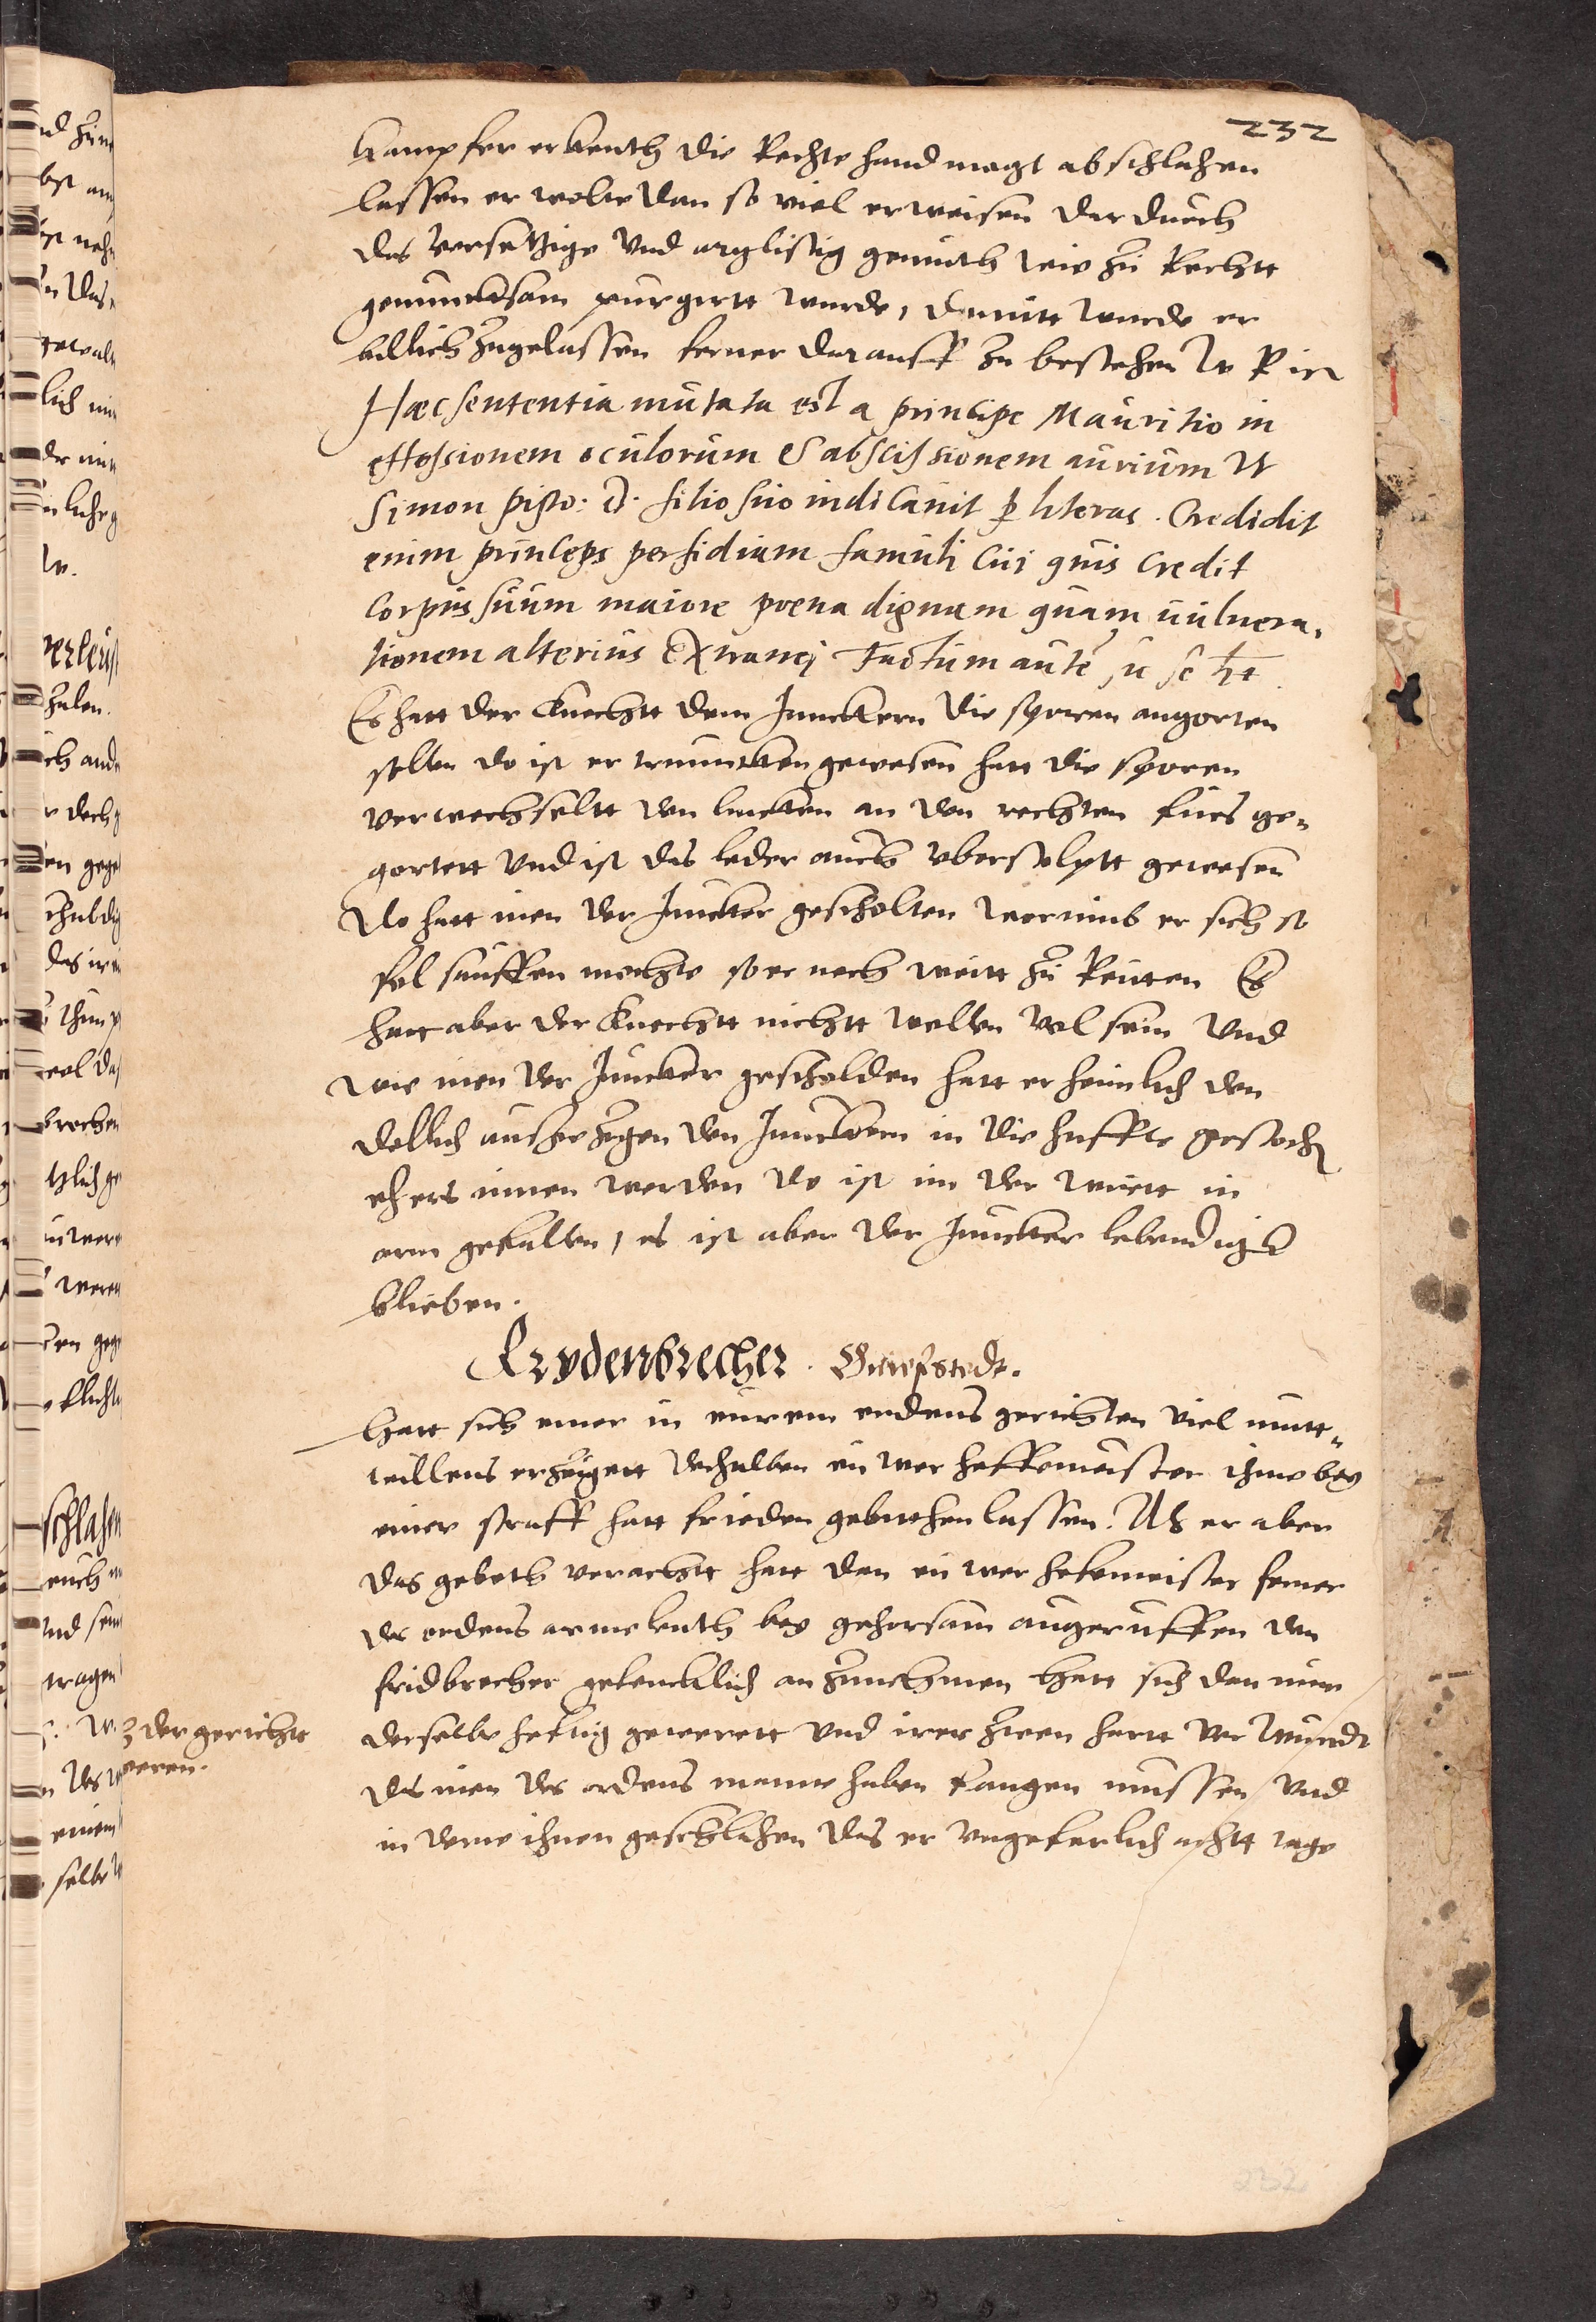 232
kampfer erkenth die Rechte hand magk abschlahen
lassen er wolte dan so viel erweisen dar durch
das versetzige und arglistig gemuth wie zu Recht
genuncksam purgirtt wurde, domitt wurde er
billich zugelassen ferner darauff zu bestehen
Hæc sententia mutata est a principe Mauritio in
effossionem oculorum & abscissionem aurium ut
Simon pisto: D. filio suo indicavit p literas. Credidit
enim princeps perfidiam famuli cui quis credit
corpus suum maiore poena dignam quam uulnera,
tionem alterius extranej Factum autē sic se ht
Es hatt der knechtt dem Junckern die sporen angorten
sollen do ist er trunncken gewesen hatt die sporen
verwechseltt den lincken an den rechten fues ge=
gortett und ist das leder auch vberstolptt gewesen
Do hatt inen der Juncker gescholten worumb er sich so
fol sauffen mochte so er noch weitt zu Reitten Es
hatt aber der knechtt nichtt wollen vol sein und
wie inen der Juncker gescholden hatt er heimlich den
dollich ausgezogen den Junckern in die huffte gestoch
eh ers innen worden do ist im der wirtt in
arm gefallen, es ist aber der Juncker lebendigk
blieben.
Frydenbrecher. Griefstedt.
Hatt sich einer in eurem ordens gerichten viel mutt=
willens erzeigett deshalben eu wer hoffemeister ihme bey
einer straff hatt frieden gebiethen lassen. Als er aber
das geboth verachtt hatt dan eu wer hofemeister ferner
des ordens arme leuth bey gehorsam angeruffen den
fridbrecher gefencklich an zunehmen Hatt sich dan nun
derselbe heftig gewerett und irer zween hartt ver wundt
das inen des ordens manne haben fangen mussen und
in deme ihnen geschlahen das er ungeferlich achtt tage
3 der gerichtt
weren.